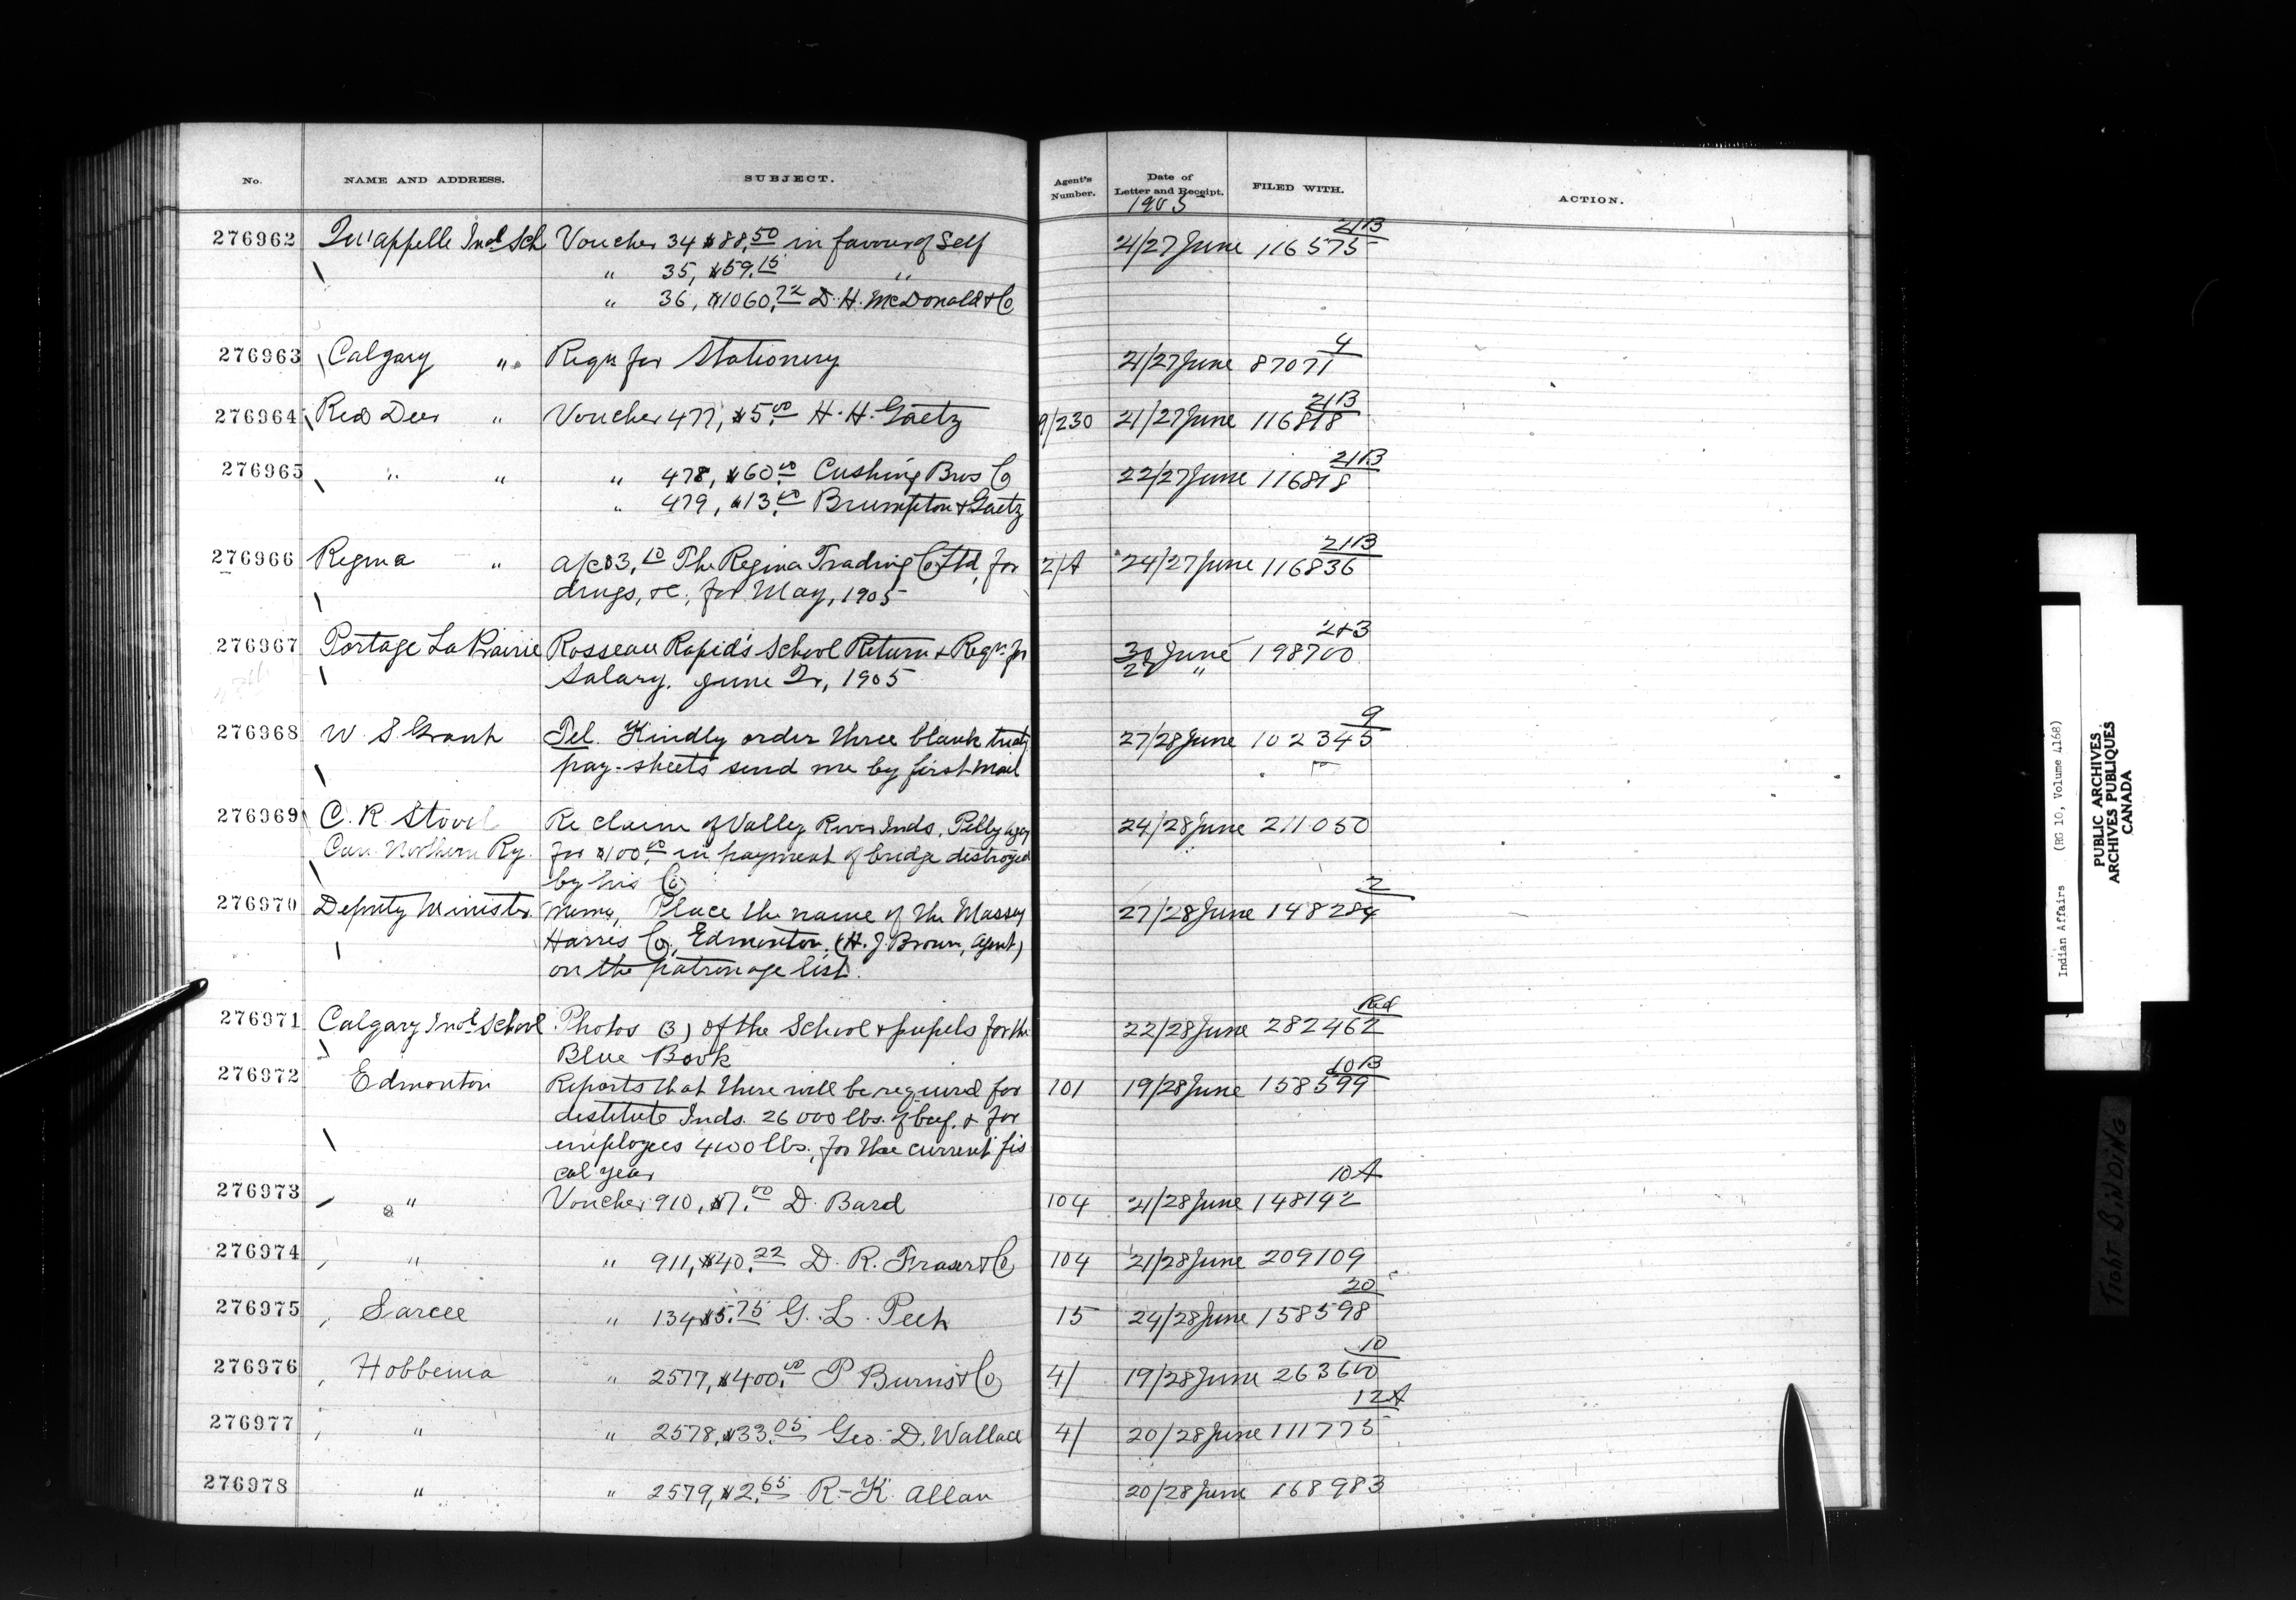 No. NAME AND ADDRESS. SUBJECT. Agent's Number. Date of Letter and Receipt. FILED WITH. ACTION.
1905
21B
276962 Qu'appelle Indl Sch Voucher 34 $88.50 in favour of Self 21/27 June 116575
" 35, $59.15 "
" 36, $1060.72 D. H. McDonald & Co
4
276963 Calgary " Reqn for Stationery 21/27 June 87071
21B
276964 Red Deer " Voucher 477, $5.00 H. H. Gaetz 9/230 21/27 June 116818
21B
276965 " " " 478, $60.00 Cushing Bros Co 22/27 June 116818
" 479, $13.00 Brumpton & Gaetz
21B
276966 Regina " a/c $3.10 The Regina Trading Co Ltd, for 2/A 24/27 June 116836
drugs, &c, for May, 1905
2+3
276967 Portage La Prairie Rosseau Rapid's School Return & Reqn for 30 June 198700
Salary. June Qr, 1905 "
9
276968 W. S. Grant Tel. Kindly order three blank treaty 27/28 June 102345
pay-sheets send me by first mail
276969 C. R. Stovel Re claim of Valley River Inds, Pelly Agcy 24/28 June 211050
Can. Northern Ry. for $100.00 in payment of bridge destroyed
by his Co
2
276970 Deputy Minister Memo, Place the name of the Massey 27/28 June 148284
Harris Co, Edmonton, (H. J. Brown, Agent)
on the patronage list.
Red
276971 Calgary Indl School Photos (3) of the School & pupils for the 22/28 June 282462
Blue Book
10B
276972 Edmonton Reports that there will be required for 101 19/28 June 158599
destitute Inds. 26000 lbs. of beef, & for
employees 4000 lbs., for the current fis
cal year
10A
276973 " Voucher 910, $7.00 D. Bard 104 21/28 June 148142
276974 " " 911, $40.22 D. R. Fraser & Co 104 21/28 June 209109
20
276975 Sarcee " 134 $5.75 G. L. Peet 15 24/28 June 158598
10
276976 Hobbema " 2577, $400.00 P Burns & Co 4/ 19/28 June 263600
12A
276977 " " 2578, $33.05 Geo. D. Wallace 4/ 20/28 June 111775
276978 " " 2579, $2.65 R. K. Allan 20/28 June 168983
Indian Affairs (RG 10, Volume 4168)
PUBLIC ARCHIVES
ARCHIVES PUBLIQUES
CANADA
TIGHT BINDING